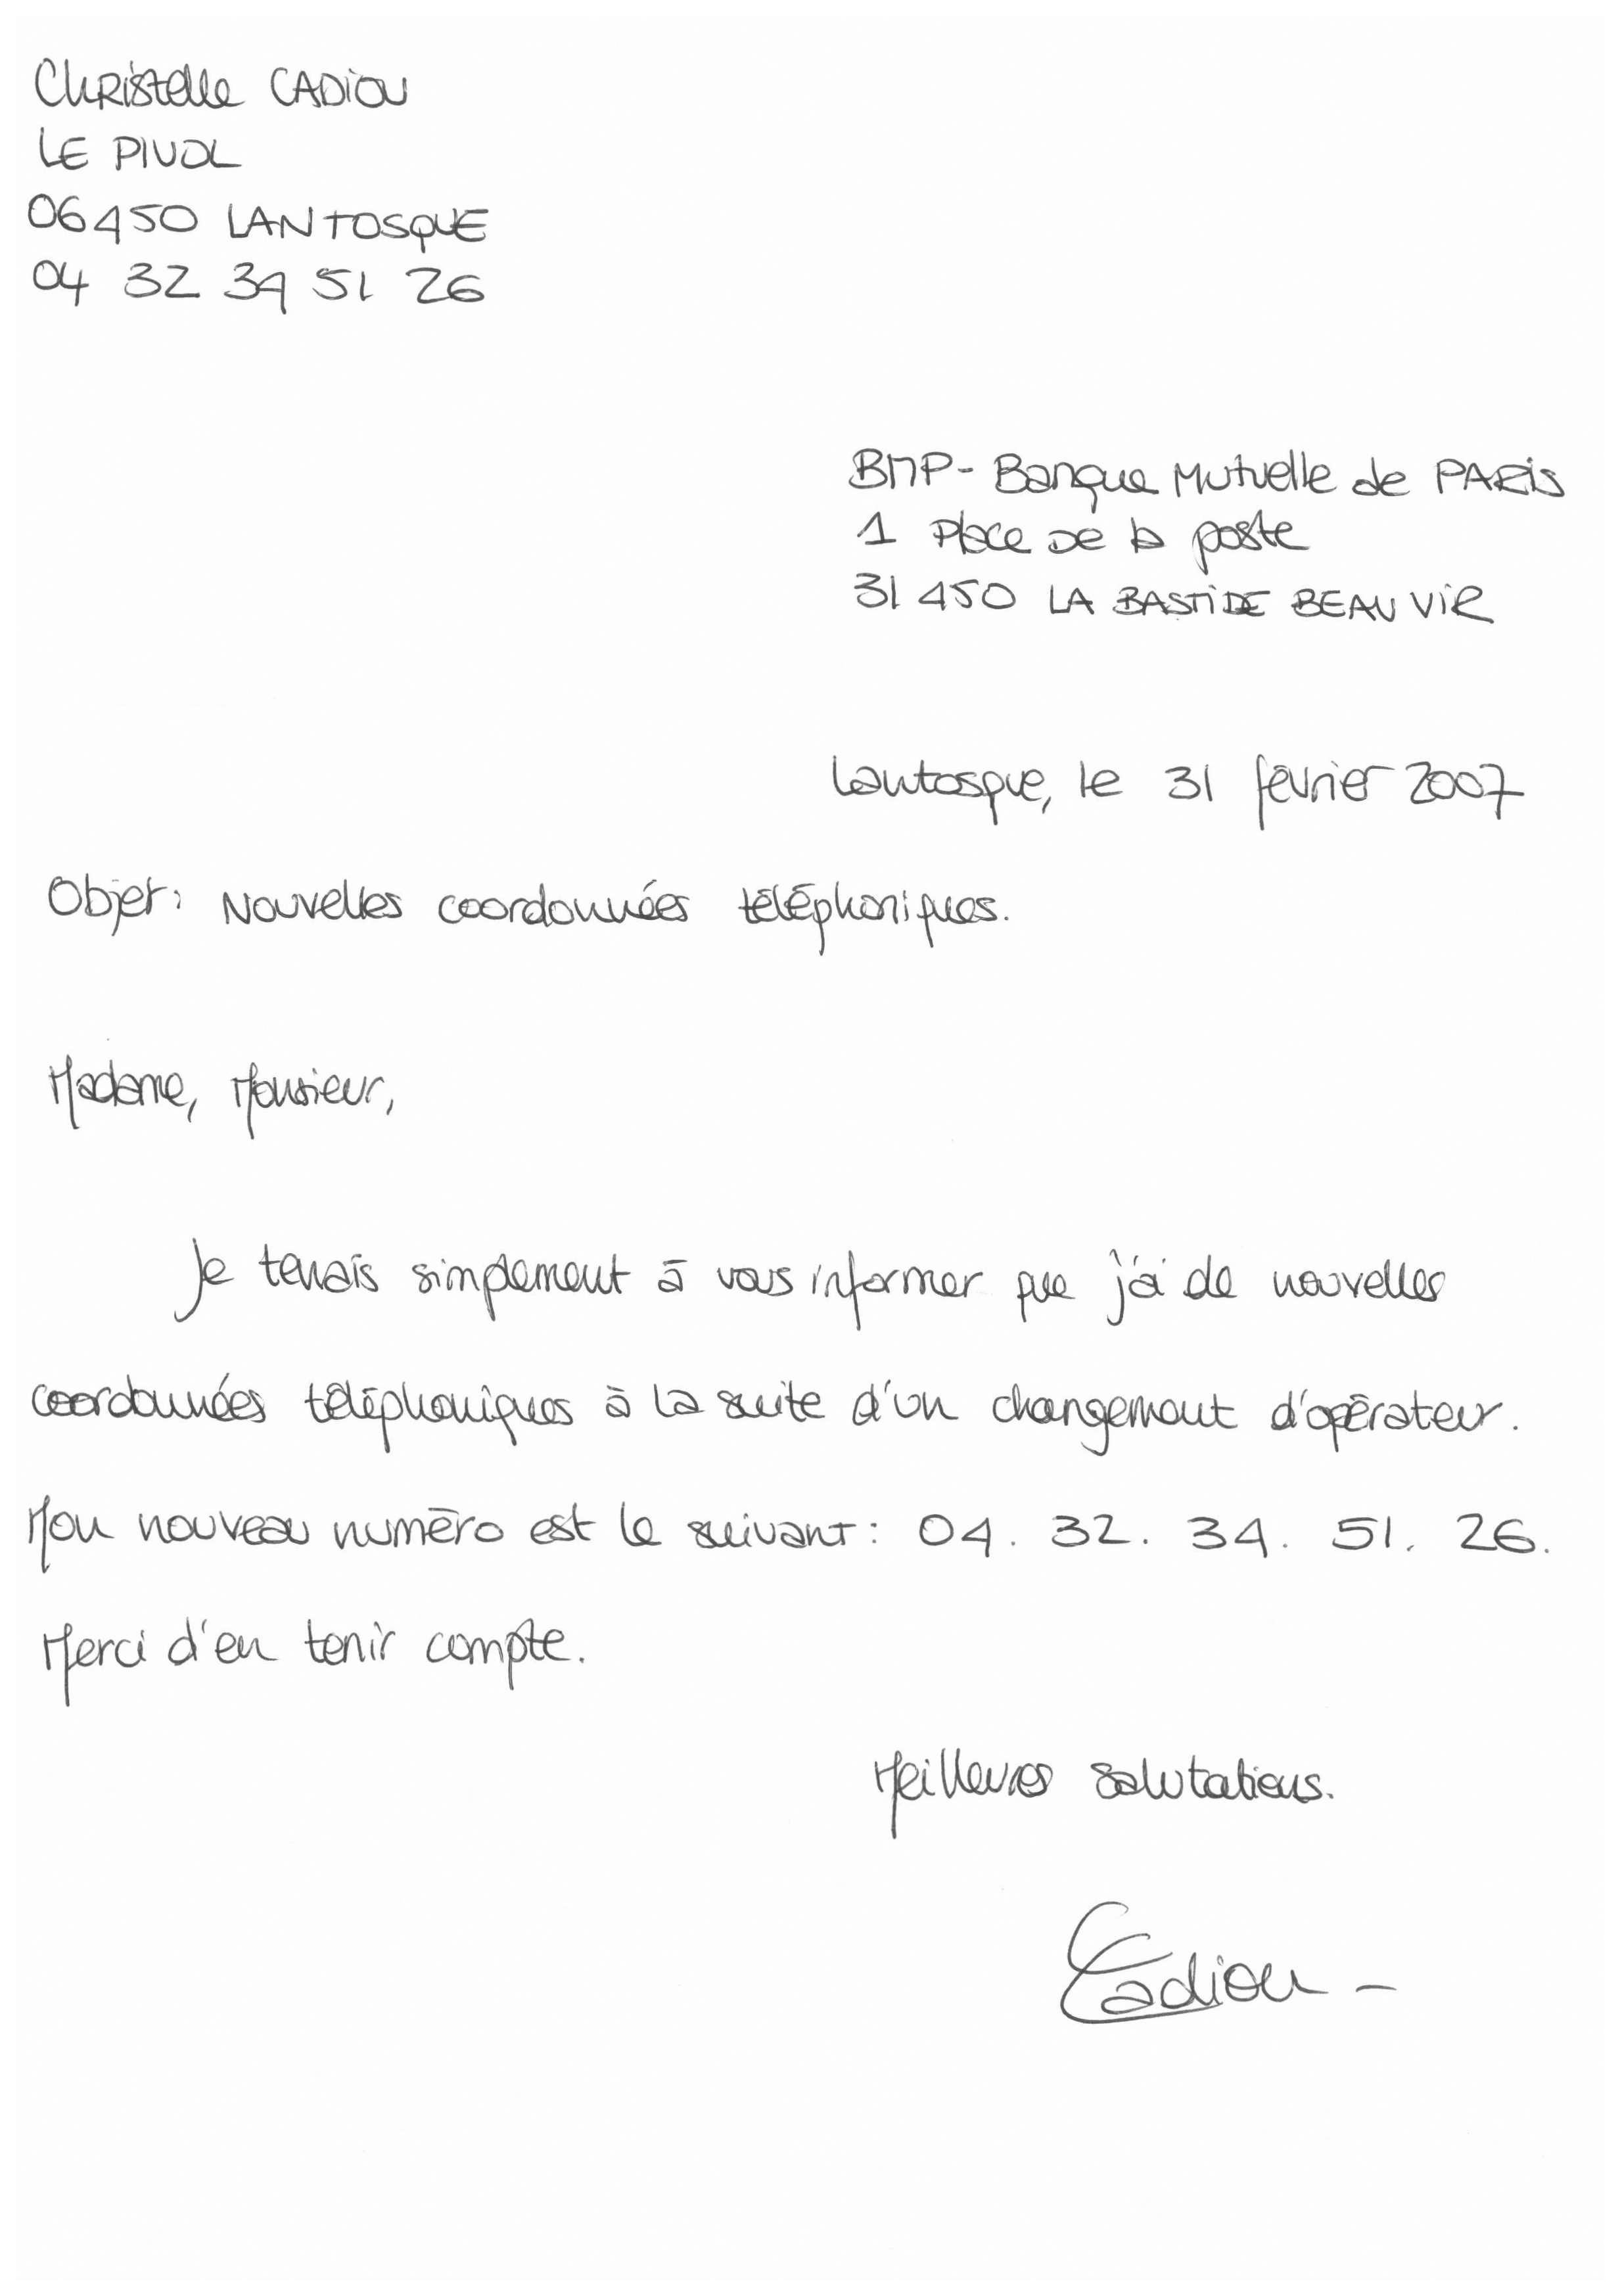 Christelle CADiOU
LE PIVOL
06450 LANTOSQUE
04 32 34 51 26
BMP - Banque Mutuelle de PARiS
1 Place De la poste
31 450 LA BASTiDE BEAUViR
Lantosque, le 31 février 2007
Objet : Nouvelles coordonnées téléphoniques.
Madame, Monsieur,
Je tenais simplement à vous informer que j'ai de nouvelles
coordonnées téléphoniques à la suite d'un changement d'opérateur.
Mon nouveau numéro est le suivant : 04. 32. 34. 51. 26.
Merci d'en tenir compte.
Meilleures salutations.
Cadiou -